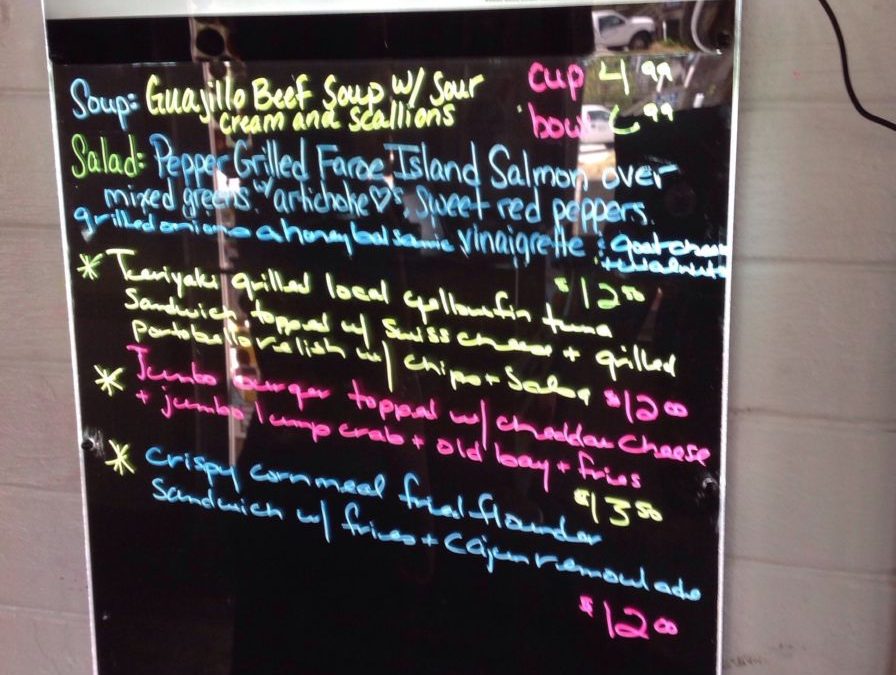 Soup: Guajillo Beef Soup w/ Sour cup 4 99
cream and scallions bowl 6 99
Salad: Pepper Grilled Faroe Island Salmon over
mixed greens w/ artichoke ♡s, sweet red peppers,
grilled onions a honey balsamic vinaigrette & goat cheese
+ walnuts
$12 50
* Teriyaki grilled local yellowfin tuna
Sandwich topped w/ Swiss cheese + grilled
portobello relish w/ chips + Salsa $12 00
* Jumbo burger topped w/ cheddar cheese
+ jumbo lump crab + old bay + fries
$13 50
* Crispy cornmeal fried flounder
Sandwich w/ fries + Cajun remoulade
$12 00